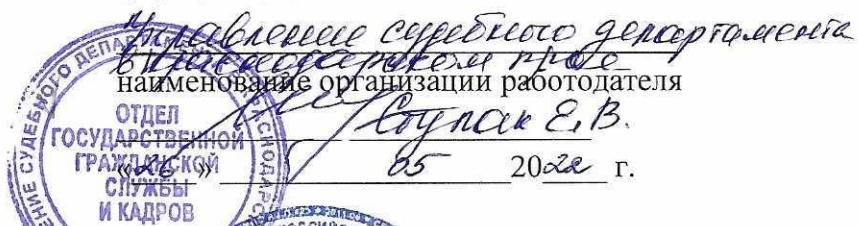 Управление судебного департамента
в Краснодарском крае
наименование организации работодателя
Ступак Е.В.
«26» 05 2022 г.
ОТДЕЛ
ГОСУДАРСТВЕННОЙ
ГРАЖДАНСКОЙ
СЛУЖБЫ
И КАДРОВ